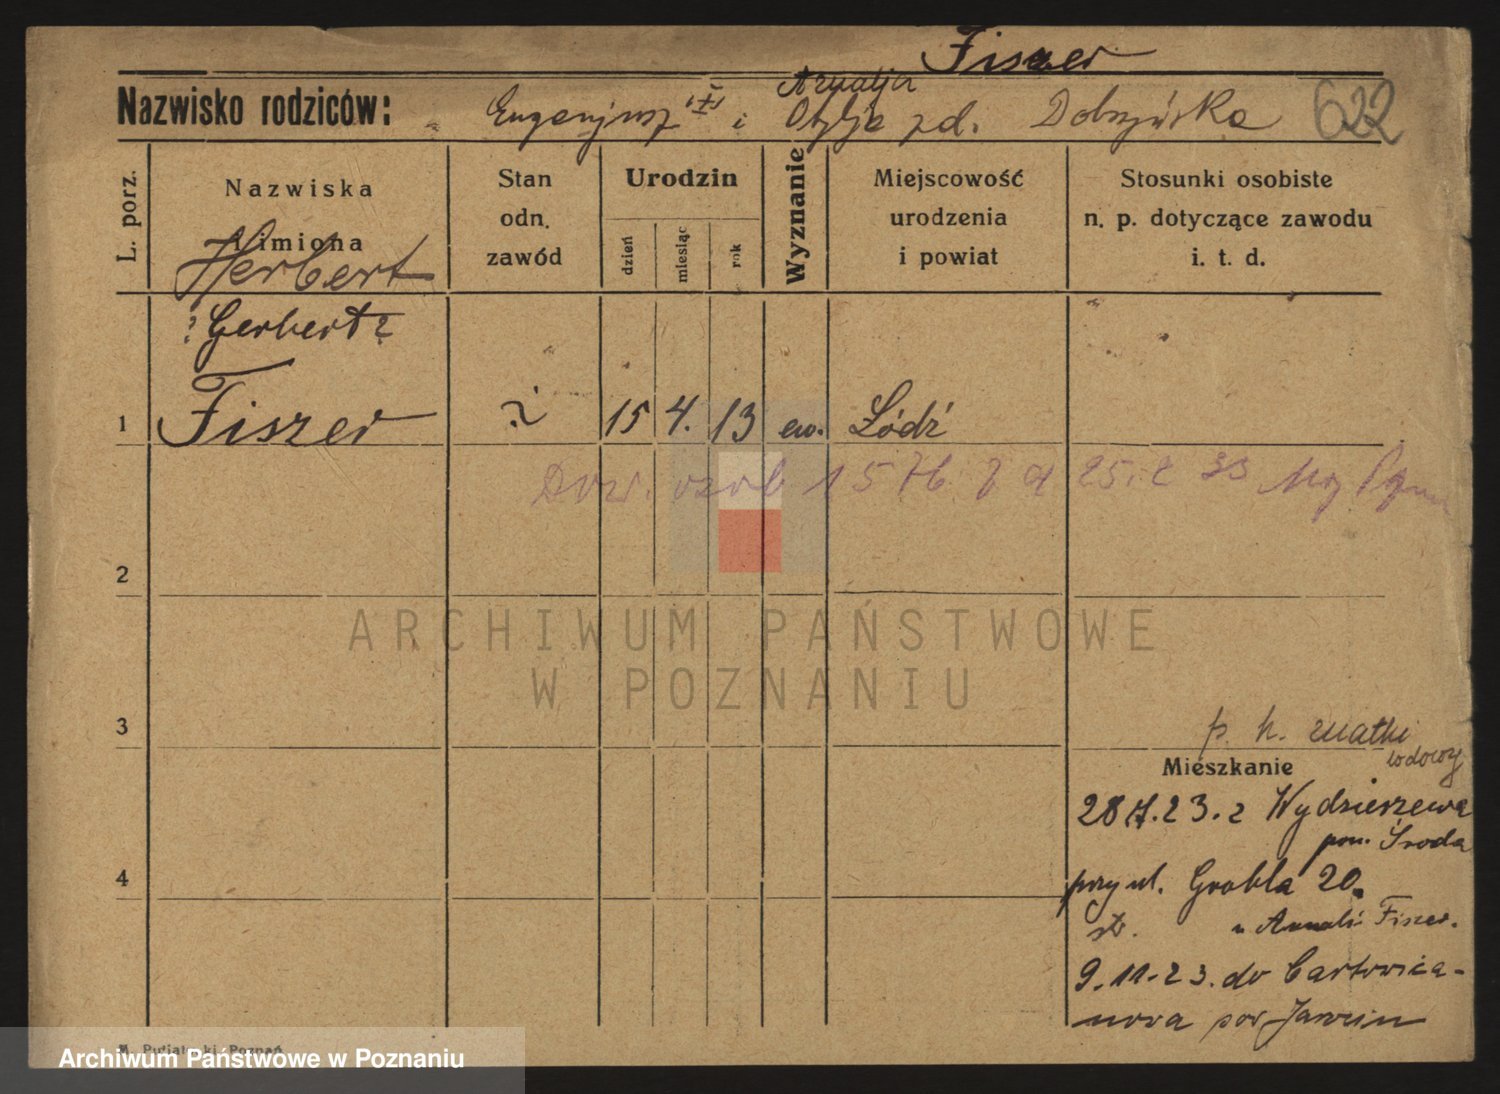 Fiszer
Nazwisko rodziców: Eugenjusz i Otylja zd. Dobrzyńska 622
L. porz.
Nazwiska
i imiona
Stan
odn.
zawód
Urodzin
dzień
miesiąc
rok
Wyznanie
Miejscowość
urodzenia
i powiat
Stosunki osobiste
n. p. dotyczące zawodu
i. t. d.
Herbert
? Gerbert ?
1 Fiszer ż 15 4. 13 ew. Łódź
Dow. osob 1576 z d 25. 2 33
2
ARCHIWUM PAŃSTWOWE
W POZNANIU
3
p. k. matki
wdowy
Mieszkanie
28 7. 23. z Wydzierzewa
pow. Środa
4
przy ul. Grobla 20.
str. u Amalii Fiszer.
9. 11. 23. do
nowa pow Jarocin
Putiatycki, Poznań
Archiwum Państwowe w Poznaniu